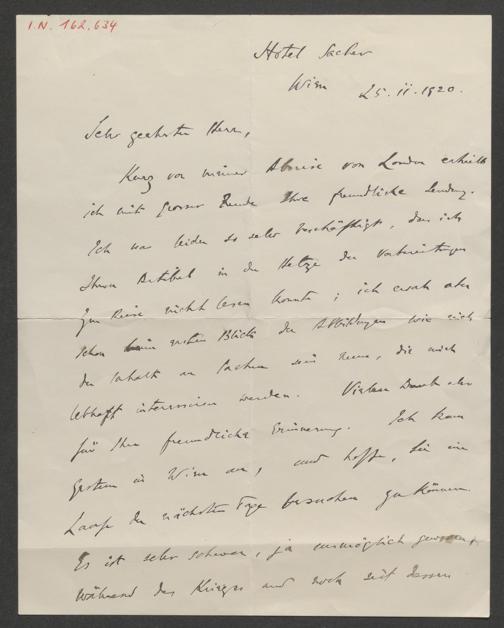 I.N. 162.634
Hotel Sacher
Wien 25.II.1920.
Sehr geehrter Herr,
Kurz vor meiner Abreise von London erhielt
ich mit grosser Freude Ihre freundliche Sendung.
Ich war leider so sehr beschäftigt, dass ich
Ihren Artikel in der Hetze der Vorbereitungen
zur Reise nicht lesen konnte; ich ersah aber
schon beim ersten Blick der Abbildungen wie reich
der Inhalt an Sachen sein muss, die mich
lebhaft interessieren werden. Vielen Dank also
für Ihre freundliche Erinnerung. Ich kam
gestern in Wien an, und hoffe, Sie im
Laufe der nächsten Tage besuchen zu können.
Es ist sehr schwer, ja unmöglich gewesen,
während des Krieges und noch seit dessen